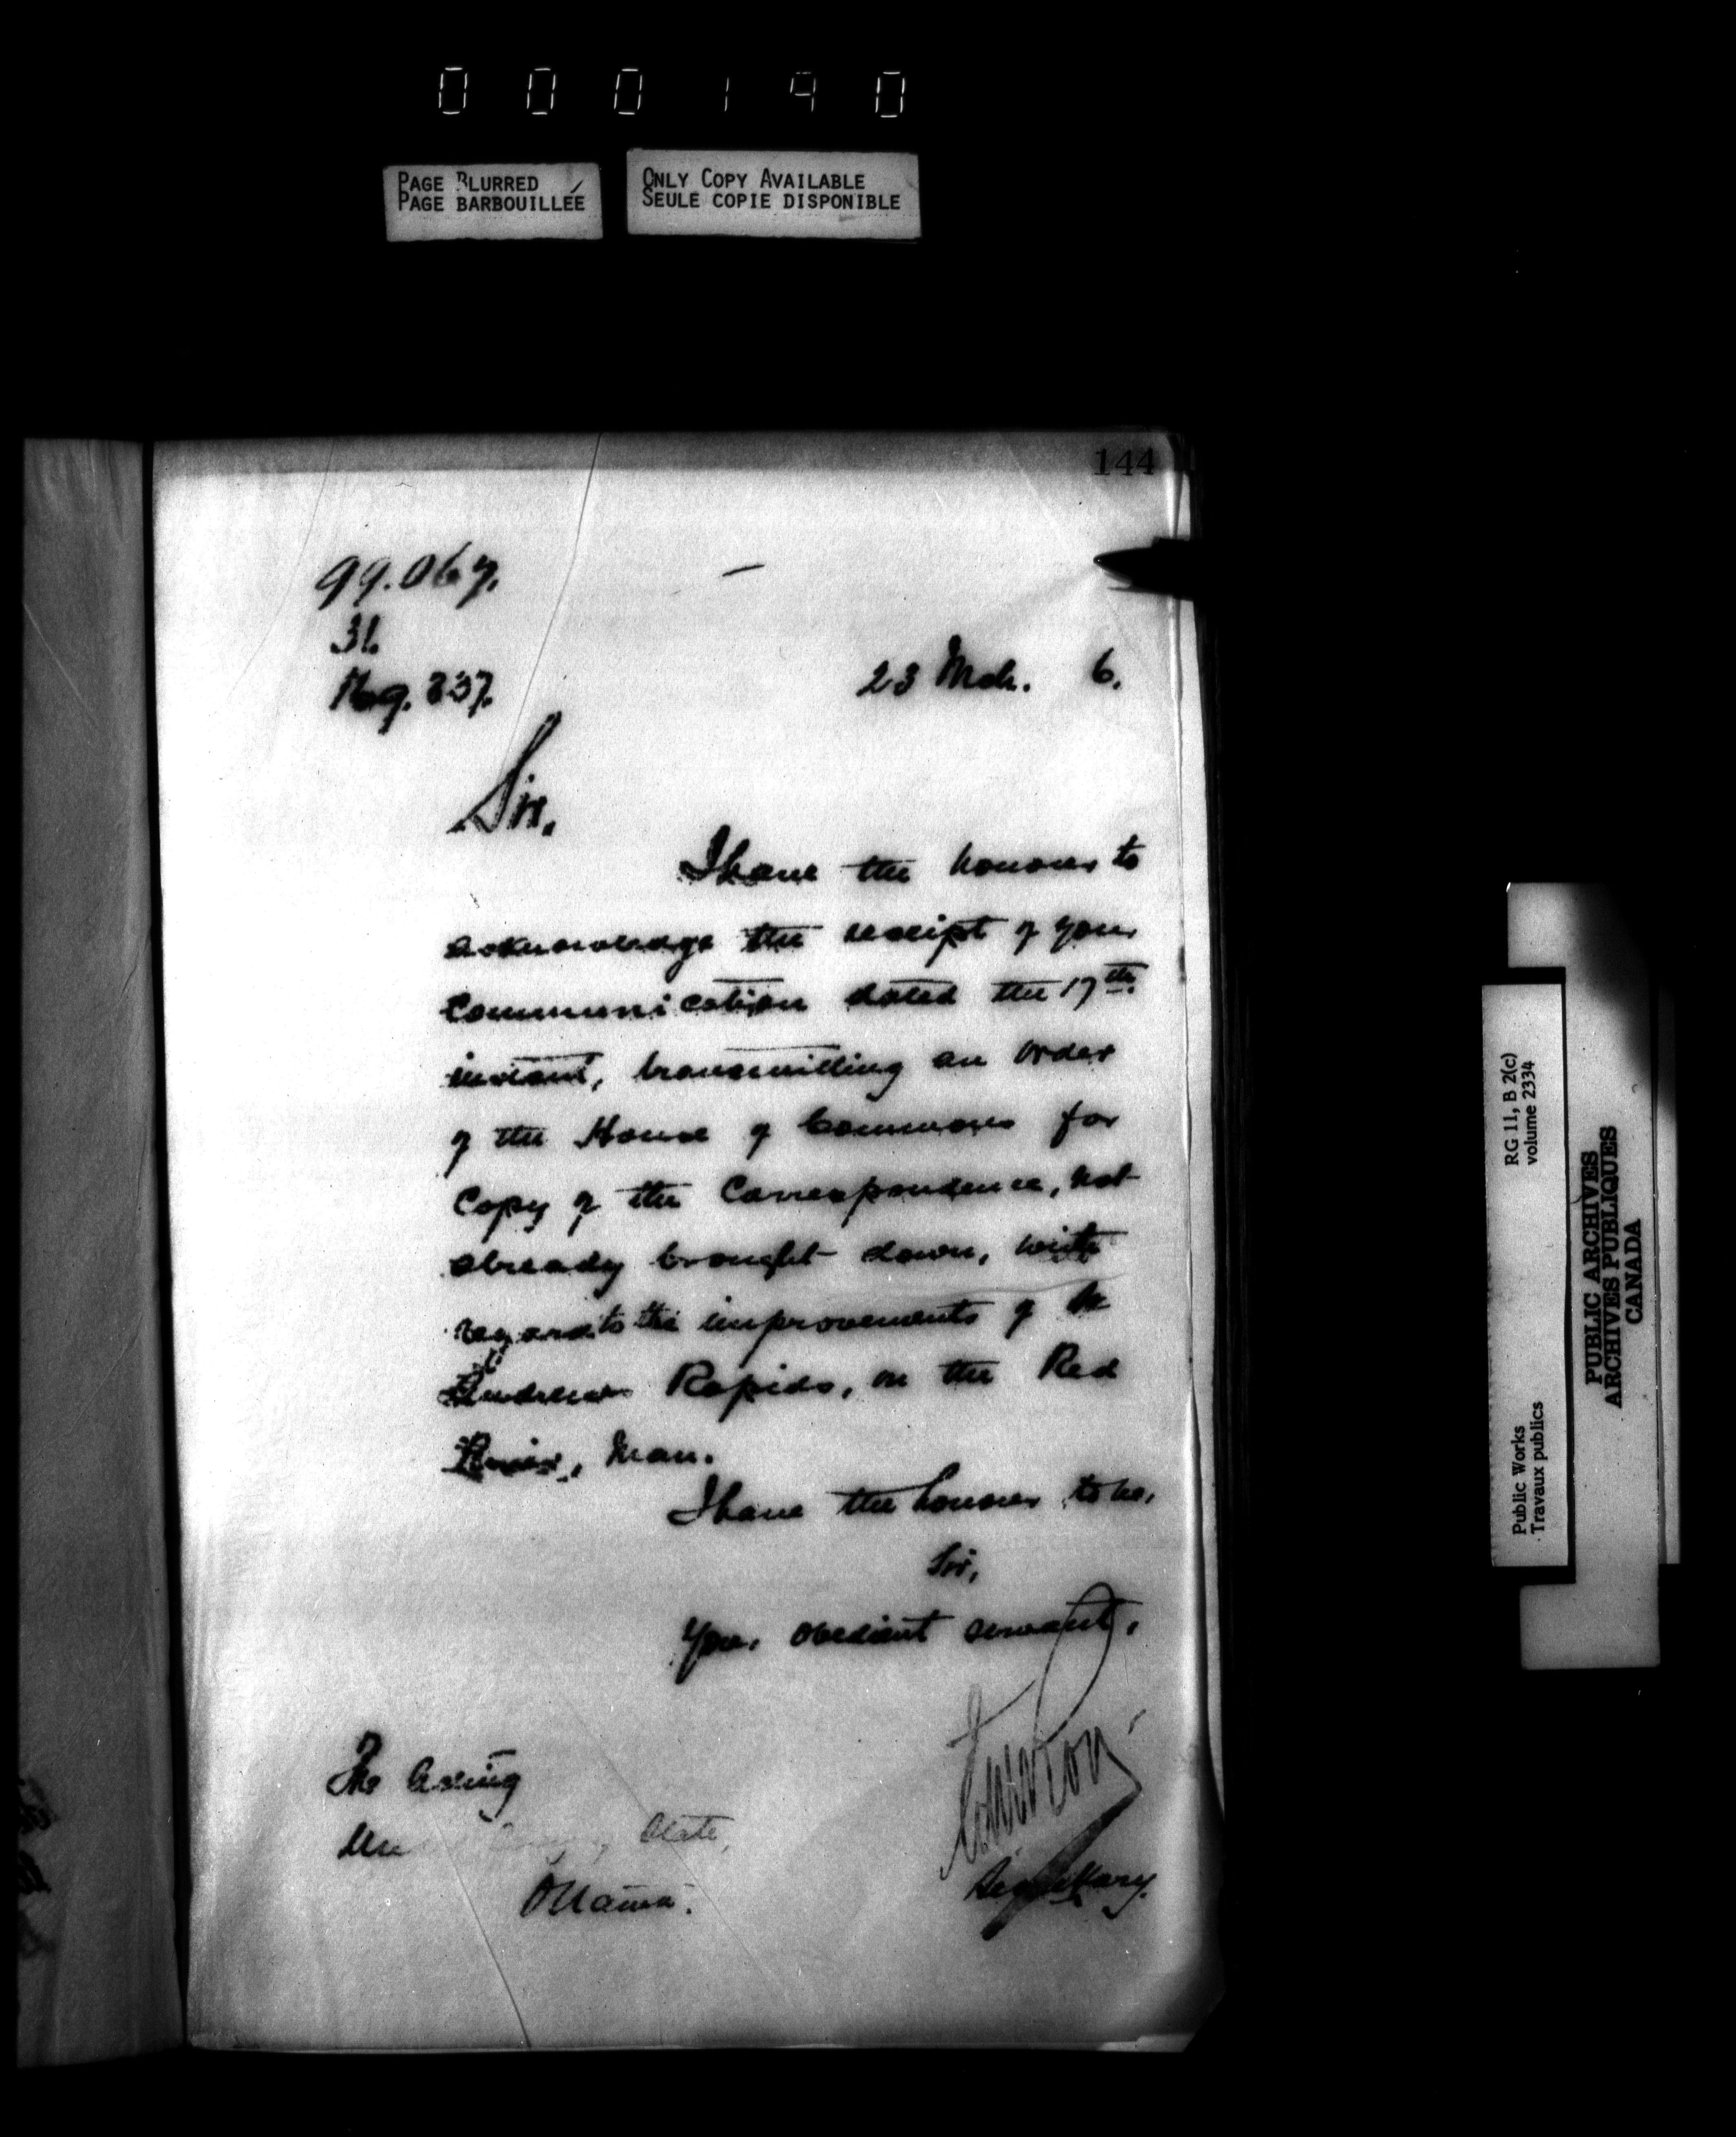 000190
PAGE BLURRED
PAGE BARBOUILLÉE
ONLY COPY AVAILABLE
SEULE COPIE DISPONIBLE
144
99.067.
31.
23 Mch. 6.
Sir.
I have the honour to
acknowledge the receipt of your
Communication dated the 17th.
instant, transmitting an Order
of the House of Commons for
Copy of the Correspondence, not
already brought down, with
regard to the improvements of St
Andrews Rapids, on the Red
River, Man.
I have the honour to be,
Sir,
Your obedient servant,
Secretary.
The Acting
State,
Ottawa.
RG 11, B 2(c)
volume 2334
Public Works
Travaux publics
PUBLIC ARCHIVES
ARCHIVES PUBLIQUES
CANADA